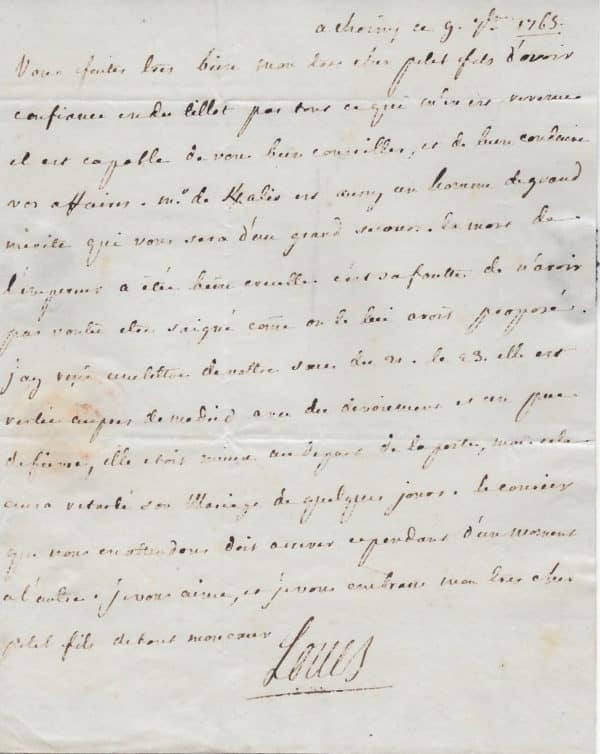 a choisy ce 9. 7bre 1765.
Vous faites tres bien mon tres cher petit fils d'avoir
confiance en du tillot par tout ce qui m'en est revenue
il est capable de vous bien conseiller, et de bien conduire
vos affaires. mr. de est aussy un homme de grand
merite qui vous sera d'un grand secours. la mort de
l'empereur a été bien cruelle c'est sa faulte de n'avoir
pas voulu etre saigné come on le lui avoit proposé.
j'ay reçu une lettre de vostre sœur du 21. le 23. elle est
restée aupres de madrid avec du devoiement et un peu
de fievre, elle etoit mieux au depart de la poste, mais cela
aura retardé son Mariage de quelques jours. le courier
que nous en attendons doit arriver cependant d'un moment
a l'autre. je vous aime, et je vous embrasse mon tres cher
petit fils de tout mon cœur
Louis